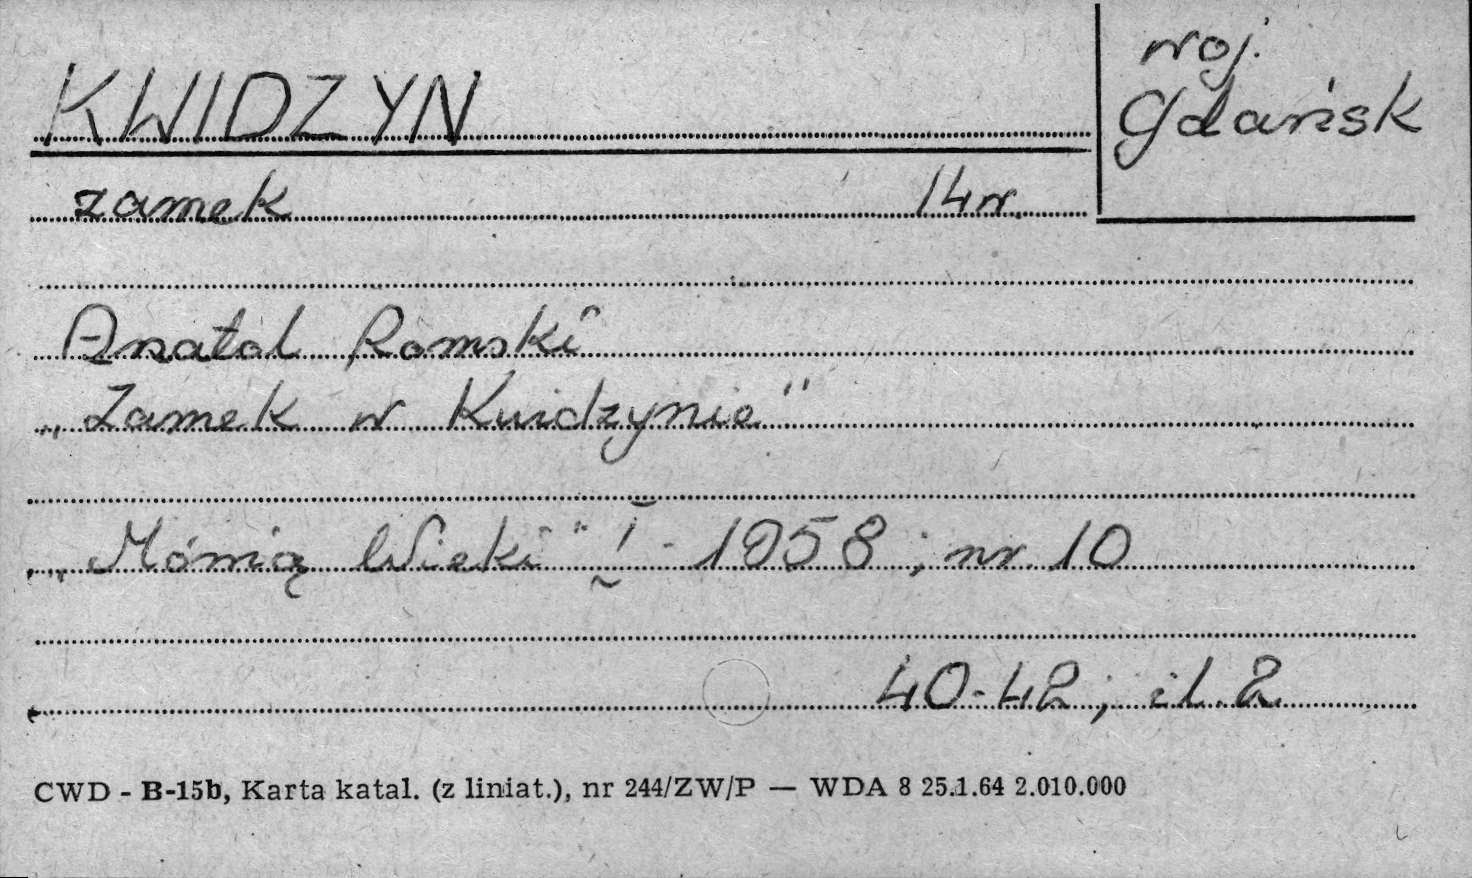 KWIDZYN
woj.
Gdańsk
zamek 14w.
Anatol Romski
„Zamek w Kwidzynie"
„Mówią Wieki" I - 1958; nr 10
40-42; il. 2
CWD - B-15b, Karta katal. (z liniat.), nr 244/ZW/P — WDA 8 25.1.64 2.010.000